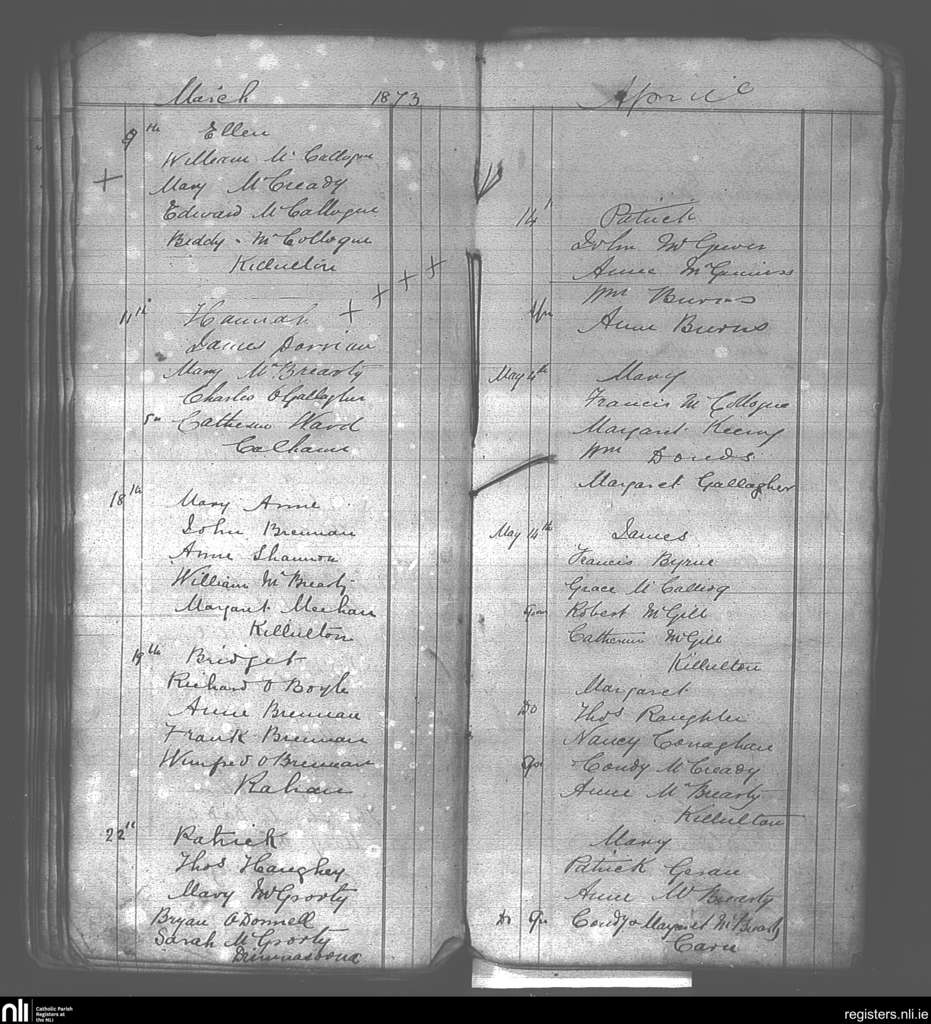 March 1873
9th Ellen
William McCallogue
Mary McCready
Edward McCallogue
Biddy McCollogue
Killulton
11th Hannah
James Dorrian
Mary McBrearty
Charles O'Gallagher
Catherine Ward
Calhame
18th Mary Anne
John Brennan
Anne Shannon
William McBrearty
Margaret Meehan
Killulton
19th Bridget
Richard O Boyle
Anne Brennan
Frank Brennan
Winifred O'Brennan
Rahan
22nd Patrick
Thos Haughey
Mary McGrorty
Bryan O'Donnell
Sarah McGrorty
April
14 Patrick
John McGiver
Anne McGinniss
Wm Burns
Anne Burns
May 4th Mary
Francis McCollogue
Margaret
Wm Dowds
Margaret Gallagher
May 14th James
Francis Byrne
Grace
Robert McGill
Catherine McGill
Killulton
Margaret
Do Thos Raughter
Nancy Conaghan
Condy McCready
Anne McBrearty
Killulton
Mary
Patrick Geran
Anne McBrearty
Condy & Margaret McBrearty
Carn
nli
Catholic Parish
Registers at
the NLI
registers.nli.ie